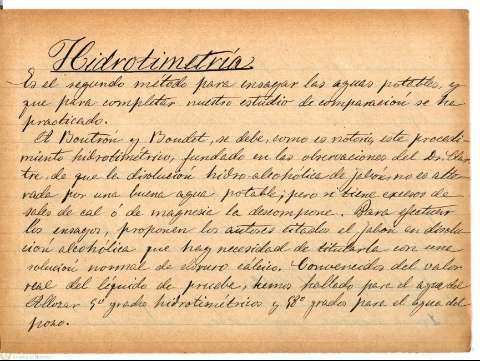 Hidrotimetría
Es el segundo método para ensayar las aguas potables, y
que para completar nuestro estudio de comparación se ha
practicado.
A Boutrón y Boudet, se debe, como es notorio, este procedi-
miento hidrotimétrico, fundado en las observaciones del Dr. Clar
de que la disolución hidro alcoholica de jabón, no es alte-
rada por una buena agua potable; pero si tiene excesos de
sales de cal ó de magnesia la descompone. Para efectuar
los ensayos, proponen los autores citados el jabón en disolu-
ción alcohólica que hay necesidad de titularla con una
solución normal de cloruro cálcico. Convencidos del valor
real del líquido de prueba, hemos hallado para el agua del
Allozar 9º grados hidrotimétricos y 58º grados para el agua del
pozo.